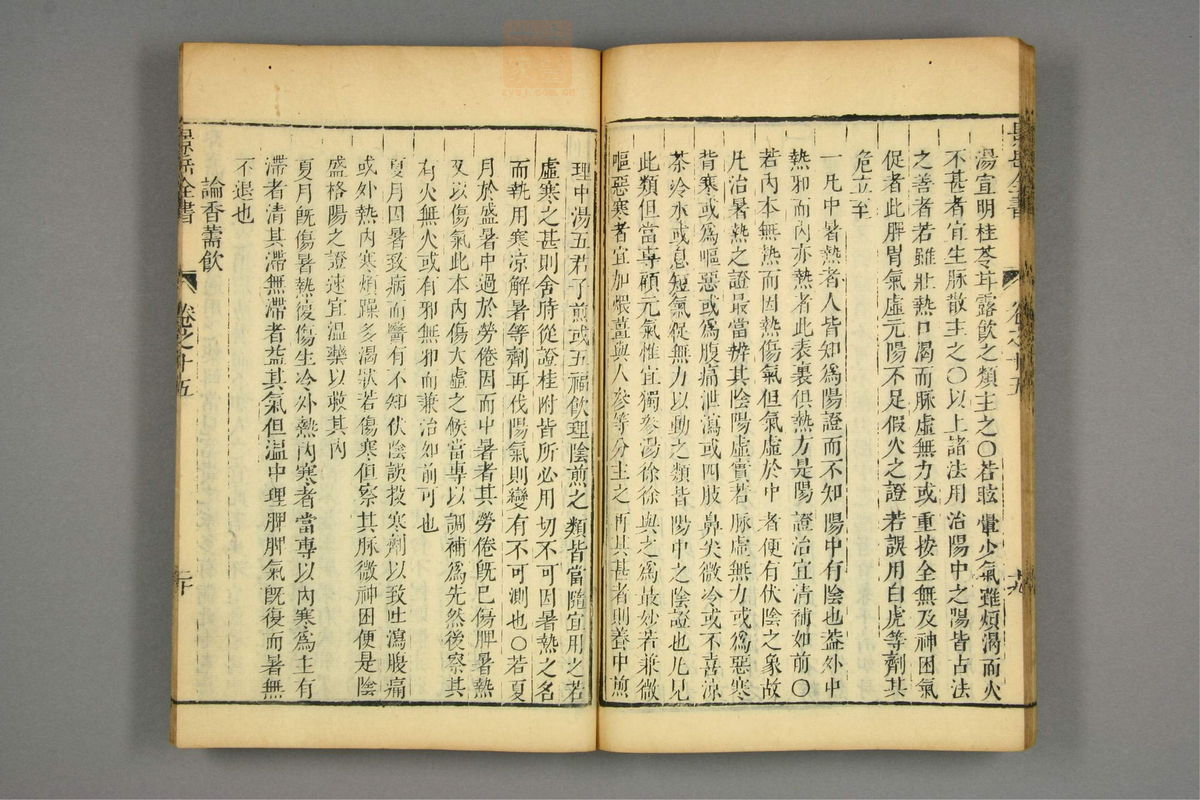 湯宣明桂苓甘露飲之類主之〇若眩暈少氣雖煩渴而火
不甚者宜生脉散主之〇以上諸法用治陽中之陽皆古法
之善者若雖壯熱口渴而脉虛無力或重按全無及神困氣
促者此脾胃氣虛元陽不足假火之證若誤用白虎等劑其
危立至
一凡中暑熱者人皆知爲陽證而不知陽中有陰也葢外中
熱邪而內亦熱者此表裏俱熱方是陽證治宜清補如前〇
若內本無熱而因熱傷氣但氣虛於中者便有伏陰之象故
凡治暑熱之證最當辨其陰陽虛實若脉虛無力或爲惡寒
背寒或爲嘔惡或爲腹痛泄瀉或四肢鼻尖微冷或不喜凉
茶冷水或息短氣促無力以動之類皆陽中之陰證也凡見
此類但當專顧元氣惟宜獨參湯徐徐與之爲最妙若兼微
嘔惡寒者宜加煨薑與人參等分主之再其甚者則養中煎
理中湯五君子煎或五福飲理陰煎之類皆當隨宜用之若
虛寒之甚則舍時從證桂附皆所必用切不可因暑熱之名
而執用寒凉解暑等劑再伐陽氣則變有不可測也〇若夏
月於盛暑中過於勞倦因而中暑者其勞倦旣已傷脾暑熱
又以傷氣此本內傷大虛之候當專以調補爲先然後察其
有火無火或有邪無邪而兼治如前可也
夏月因暑致病而醫有不知伏陰誤投寒劑以致吐瀉腹痛
或外熱內寒煩躁多渴狀若傷寒但察其脉微神困便是陰
盛格陽之證速宜温藥以救其內
夏月旣傷暑熱復傷生冷外熱內寒者當專以內寒爲主有
滯者清其滯無滯者益其氣但温中理脾脾氣旣復而暑無
不退也
論香薷飲
景岳全書
卷之十五
二十
景岳全書
卷之十五
十九